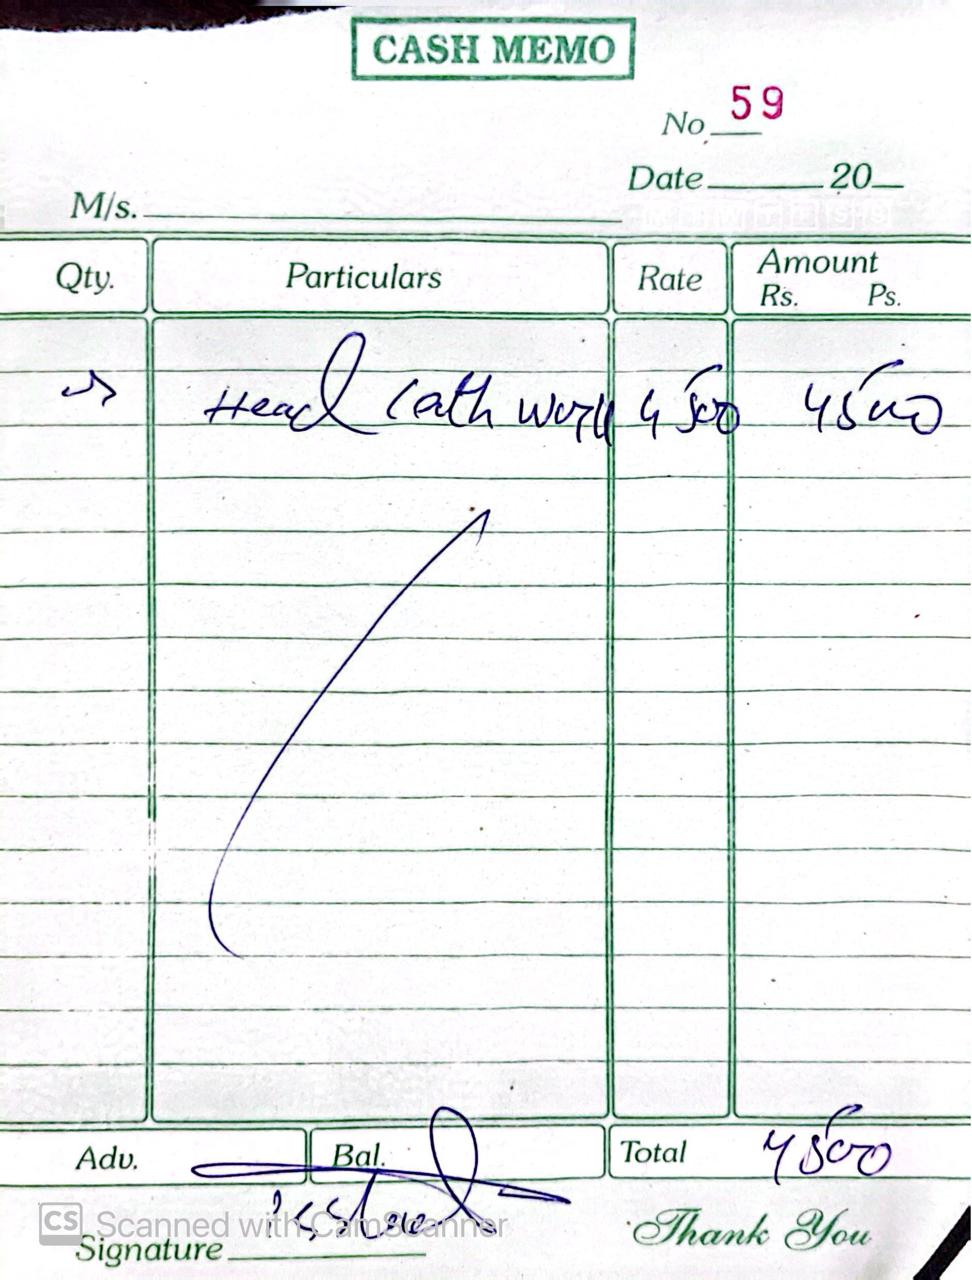 CASH MEMO
No 59
Date 20
M/s.
Qty. Particulars Rate Amount
Rs. Ps.
Head Cath work 4500 4500
Adv. Bal. Total 4500
CS Scanned with CamScanner
Signature Thank You